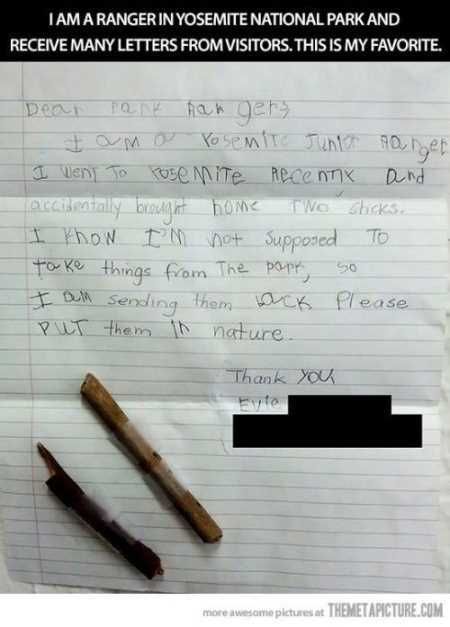 I AM A RANGER IN YOSEMITE NATIONAL PARK AND
RECEIVE MANY LETTERS FROM VISITORS. THIS IS MY FAVORITE.
Dear Park Rangers
I am a Yosemite Junior Ranger
I went to Yosemite recently and
accidentally brought home two sticks.
I know I'm not supposed to
take things from the park, so
I am sending them back Please
put them in nature.
Thank you
Evie
more awesome pictures at THEMETAPICTURE.COM